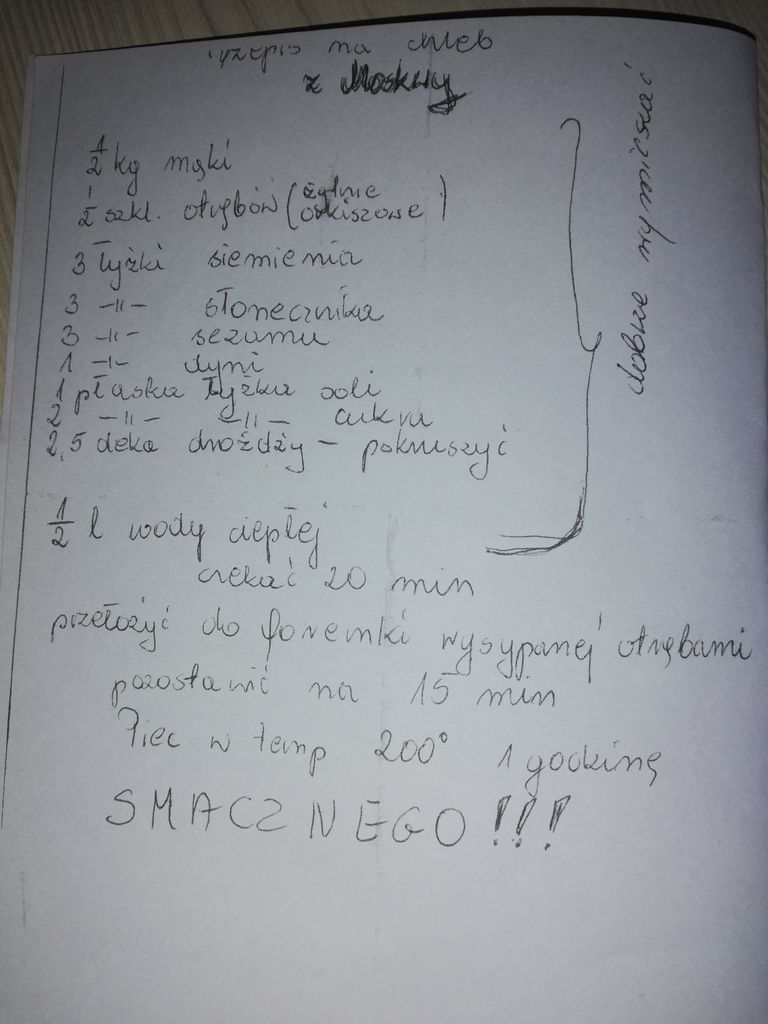 przepis na chleb
z Moskwy
1/2 kg mąki
1/2 szkl. otrębów (żytnie
orkiszowe)
3 łyżki siemienia
3 -"- słonecznika
3 -"- sezamu
1 -"- dyni
1 płaska łyżka soli
2 -"- -"- cukru
2,5 deka drożdży - pokruszyć
dobrze wymieszać
1/2 l wody ciepłej
czekać 20 min
przełożyć do foremki wysypanej otrębami
pozostawić na 15 min
Piec w temp 200° 1 godzinę
SMACZNEGO!!!